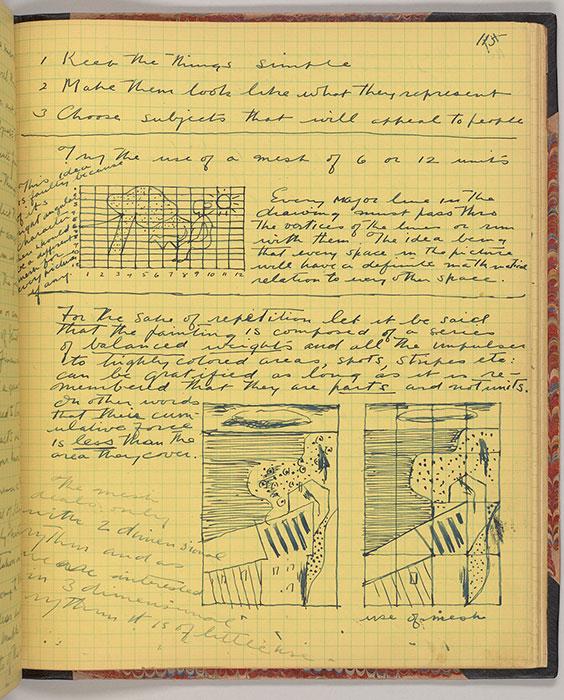 115
1 Keep the things simple
2 Make them look like what they represent
3 Choose subjects that will appeal to people
Try the use of a mesh of 6 or 12 units
This idea
is faulty because
of its
right angular
character
there should
be a different
mesh for
every picture
if any.
1 2 3 4 5 6 7 8 9 10 11 12
Every major line in the
drawing must pass thro
the vertices of the lines or run
with them. The idea being
that every space in the picture
will have a definite mathematical
relation to every other space.
For the sake of repetition let it be said
that the painting is composed of a series
of balanced weights and all the impulses
to highly colored areas, spots, stripes etc:
can be gratified as long as it is re-
memberd that they are parts and not units.
In other words
that their cum-
ulative force
is less than the
area they cover.
The mesh
deals only
with 2 dimensional
rythm and as
we are interested
in 3 dimensional
rythm it is of little use
use of mesh